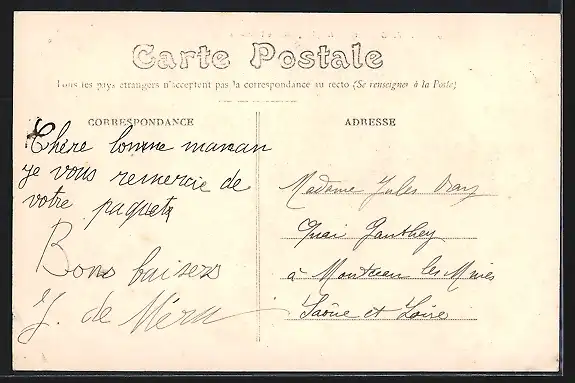 Carte Postale
Tous les pays étrangers n'acceptent pas la correspondance au recto (Se renseigner à la Poste)
CORRESPONDANCE
ADRESSE
Chère bonne maman
je vous remercie de
votre paquet
Bons baisers
J. de Méru
Madame Jules
Quai Gauthey
à Montceau les Mines
Saône et Loire